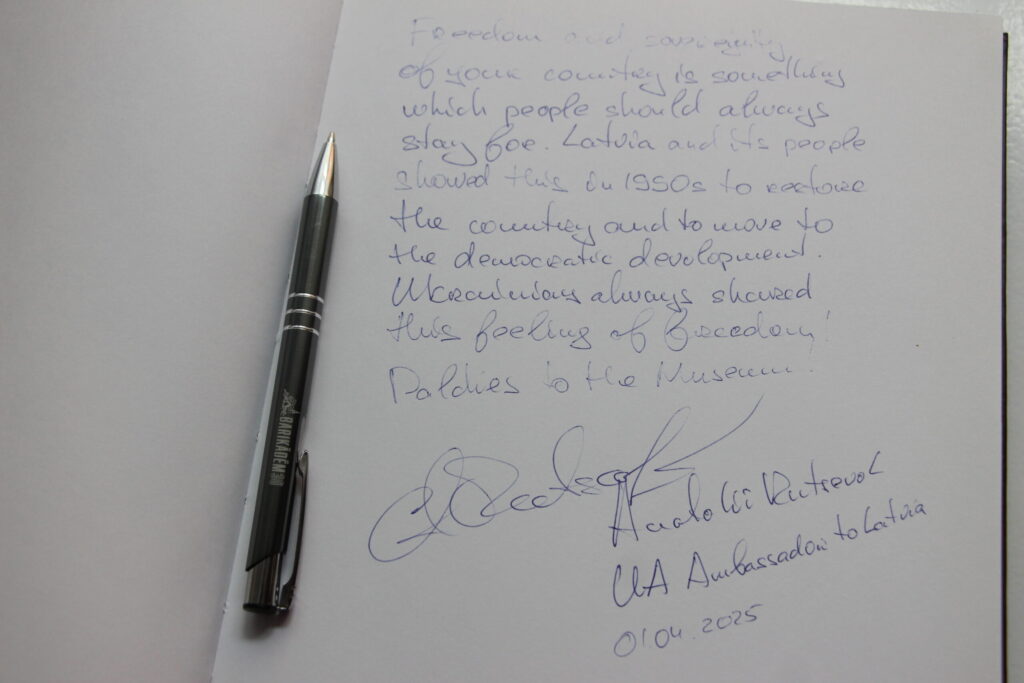 Freedom and sovereignity
of your country is something
which people should always
stay for. Latvia and its people
showed this in 1990s to restore
the country and to move to
the democratic development.
Ukrainians always shared
this feeling of freedom!
Paldies to the Museum!
Anatolii Kutsevol
UA Ambassador to Latvia
01.04.2025
BARIKĀDĒM